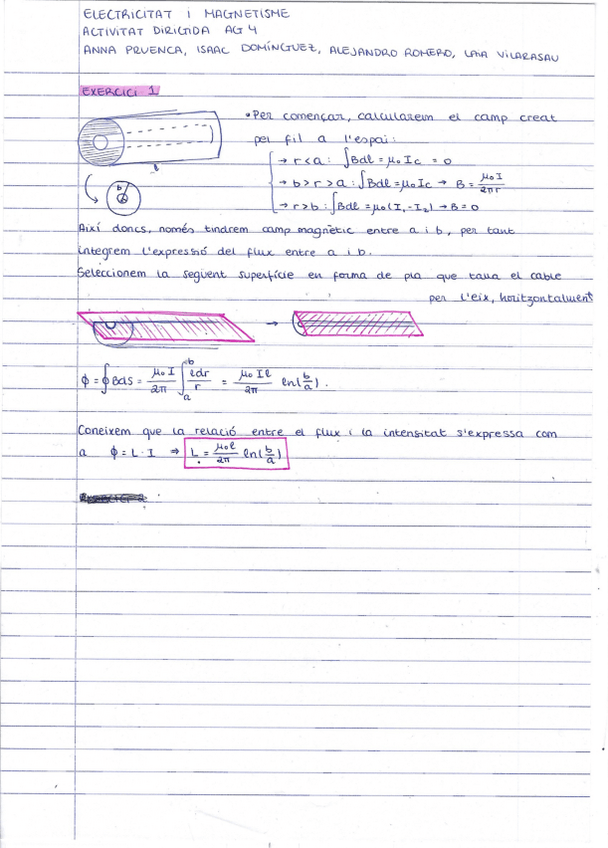 ELECTRICITAT I MAGNETISME
ACTIVITAT DIRIGIDA AG 4
ANNA PRUENCA, ISAAC DOMÍNGUEZ, ALEJANDRO ROMERO, VILARASAU
EXERCICI 1
• Per començar, calcularem el camp creat
pel fil a l'espai:
→ r < a: ∫Bdl = μ₀ Ic = 0
→ b > r > a: ∫Bdl = μ₀ Ic → B = μ₀I / 2πr
→ r > b: ∫Bdl = μ₀(I₁ - I₂) → B = 0
l
b
a
Així doncs, només tindrem camp magnètic entre a i b, per tant
integrem l'expressió del flux entre a i b.
Seleccionem la següent superfície en forma de pla que talla el cable
per l'eix, horitzontalment
→
ϕ = ∮Bds = μ₀I / 2π ∫ₐᵇ ldr / r = μ₀Il / 2π ln(b/a).
Coneixem que la relació entre el flux i la intensitat s'expressa com
a ϕ = L · I ⇒ L = μ₀l / 2π ln(b/a)